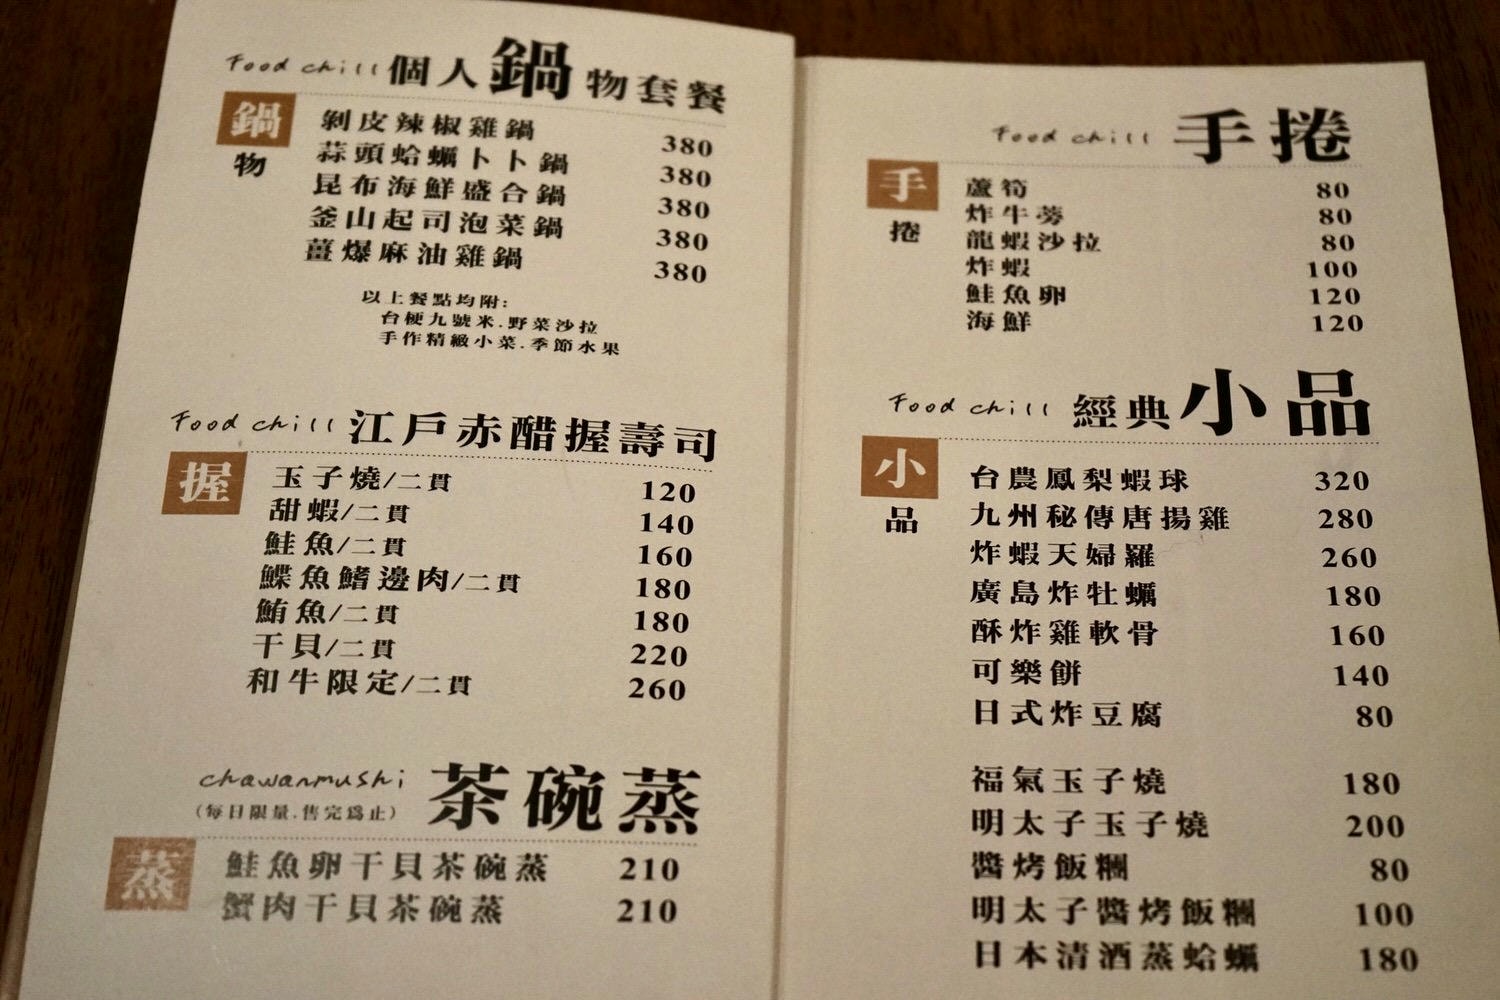 Food chill 個人鍋物套餐
鍋物
剝皮辣椒雞鍋 380
蒜頭蛤蠣卜卜鍋 380
昆布海鮮盛合鍋 380
釜山起司泡菜鍋 380
薑爆麻油雞鍋 380
以上餐點均附:
台梗九號米.野菜沙拉
手作精緻小菜.季節水果
Food chill 江戶赤醋握壽司
握
玉子燒/二貫 120
甜蝦/二貫 140
鮭魚/二貫 160
鰈魚鰭邊肉/二貫 180
鮪魚/二貫 180
干貝/二貫 220
和牛限定/二貫 260
chawanmushi 茶碗蒸
(每日限量.售完為止)
蒸
鮭魚卵干貝茶碗蒸 210
蟹肉干貝茶碗蒸 210
Food chill 手捲
手捲
蘆筍 80
炸牛蒡 80
龍蝦沙拉 80
炸蝦 100
鮭魚卵 120
海鮮 120
Food chill 經典小品
小品
台農鳳梨蝦球 320
九州秘傳唐揚雞 280
炸蝦天婦羅 260
廣島炸牡蠣 180
酥炸雞軟骨 160
可樂餅 140
日式炸豆腐 80
福氣玉子燒 180
明太子玉子燒 200
醬烤飯糰 80
明太子醬烤飯糰 100
日本清酒蒸蛤蠣 180